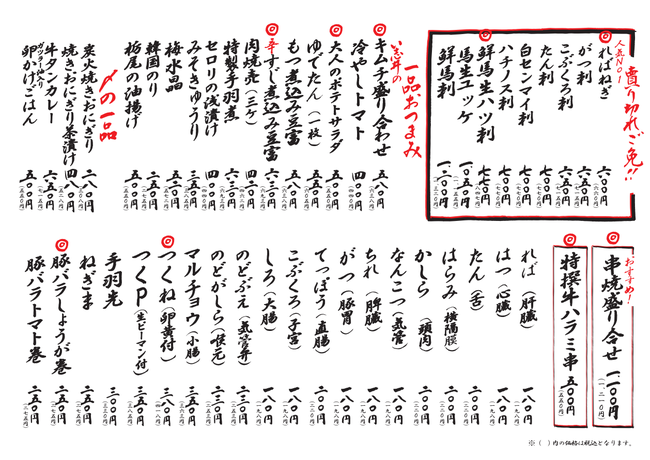 賣り切れご免!!
人気NO.1
◎ればねぎ 六〇〇円 (六六〇円)
がつ刺 六五〇円
こぶくろ刺 六五〇円
たん刺 七〇〇円
白センマイ刺 七〇〇円
ハチノス刺 七〇〇円
◎鮮馬生ハツ刺 七七〇円
馬生ユッケ 一、〇五〇円
鮮馬刺 一、二〇〇円
一品おつまみ
◎キムチ盛り合わせ 五八〇円
冷やしトマト 四〇〇円
◎大人のポテトサラダ 五五〇円
ゆでたん(一枚) 五五〇円
もつ煮込み豆富 五八〇円
◎辛すじ煮込み豆富 六三〇円
肉焼売(三ケ)
特製手羽煮 六三〇円
セロリの浅漬け 四〇〇円
みそきゅうり 四〇〇円
梅水晶 五三〇円
韓国のり 二五〇円
栃尾の油揚げ 五〇〇円
〆の一品
炭火焼きおにぎり 二八〇円
焼きおにぎり茶漬け 四八〇円
牛タンカレー 六五〇円
卵かけごはん 五〇〇円
おすすめ!
◎串焼盛り合せ 一、一〇〇円 (一、二一〇円)
◎特撰牛ハラミ串 五〇〇円 (五五〇円)
れば(肝臓) 一八〇円 (一九八円)
はつ(心臓) 一八〇円 (一九八円)
たん(舌) 二〇〇円 (二二〇円)
はらみ(横隔膜) 二〇〇円 (二二〇円)
かしら(頭肉) 二〇〇円 (二二〇円)
なんこつ(気管) 一八〇円 (一九八円)
ちれ(脾臓) 一八〇円 (一九八円)
がつ(豚胃) 一八〇円 (一九八円)
てっぽう(直腸) 一八〇円 (一九八円)
こぶくろ(子宮) 一八〇円 (一九八円)
しろ(大腸) 一八〇円 (一九八円)
のどぶえ(気管弁) 二三〇円 (二五三円)
のどがしら(喉元) 二三〇円 (二五三円)
マルチョウ(小腸) 三三〇円 (三六三円)
◎つくね(卵黄付) 三五〇円 (三八五円)
つくP(生ピーマン付) 三五〇円 (三八五円)
手羽先 三〇〇円 (三三〇円)
ねぎま 二五〇円 (二七五円)
◎豚バラしょうが巻 二五〇円 (二七五円)
豚バラトマト巻 二五〇円 (二七五円)
※( )内の価格は税込となります。